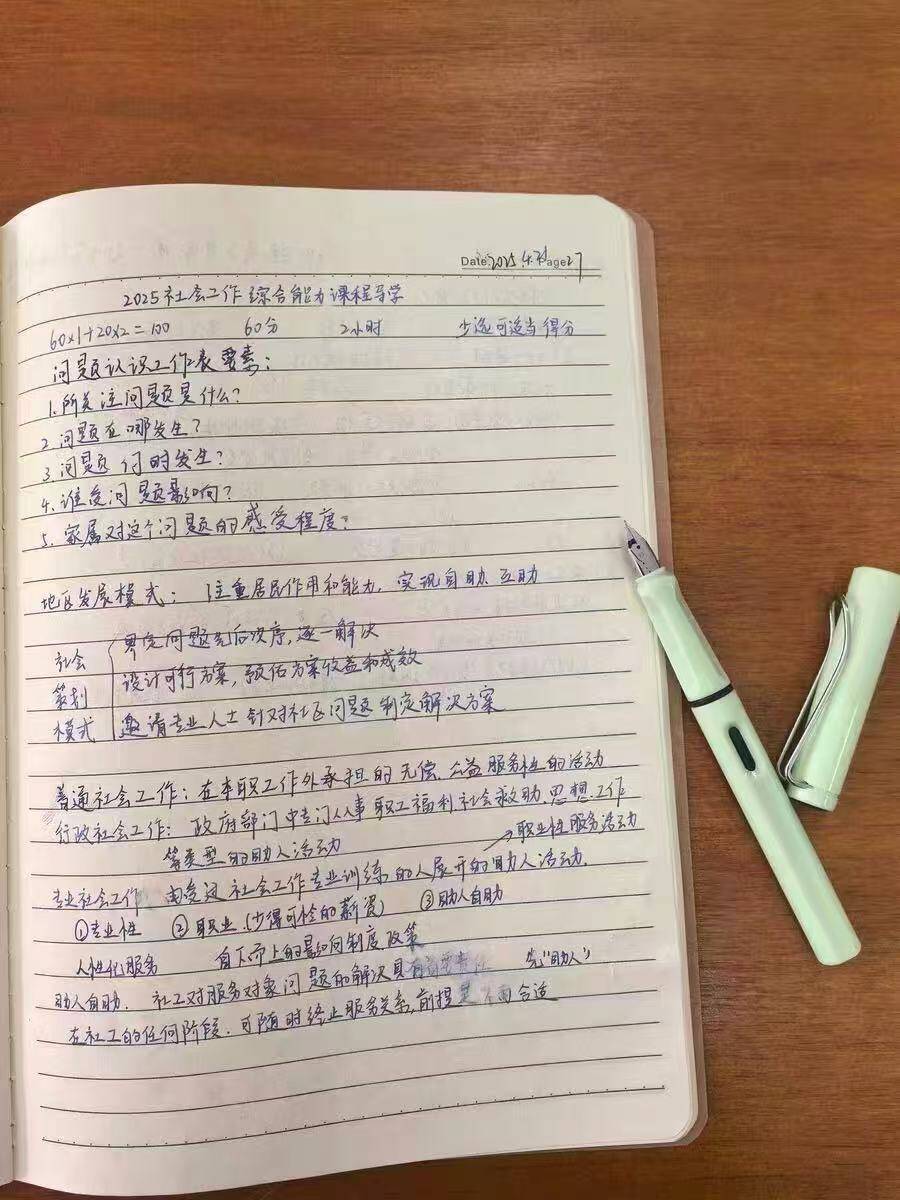 Date: 2025.4. Page 27
2025社会工作综合能力课程导学
60×1+20×2=100 60分 2小时 少选可适当得分
问题认识工作表要素:
1.所关注问题是什么?
2.问题在哪发生?
3.问题何时发生?
4.谁受问题影响?
5.家属对这个问题的感受程度?
地区发展模式: 注重居民作用和能力,实现自助、互助
界定问题先后次序,逐一解决
社会
设计可行方案,预估方案收益和成效
策划
邀请专业人士针对社区问题制定解决方案
模式
普通社会工作:在本职工作外承担的无偿、公益服务性的活动
行政社会工作:政府部门中专门从事职工福利社会救助、思想工作
等类型的助人活动 →职业性服务活动
专业社会工作 由受过社会工作专业训练的人展开的助人活动.
①专业性 ②职业(少得可怜的薪资) ③助人自助
人性化服务 自下而上的影响制度政策
助人自助. 社工对服务对象问题的解决具有 先“助人”
在社工的任何阶段.可随时终止服务关系,前提是不再合适